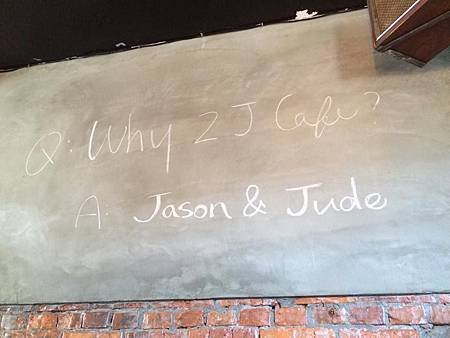 Q: Why 2 J Cafe?
A: Jason & Jude